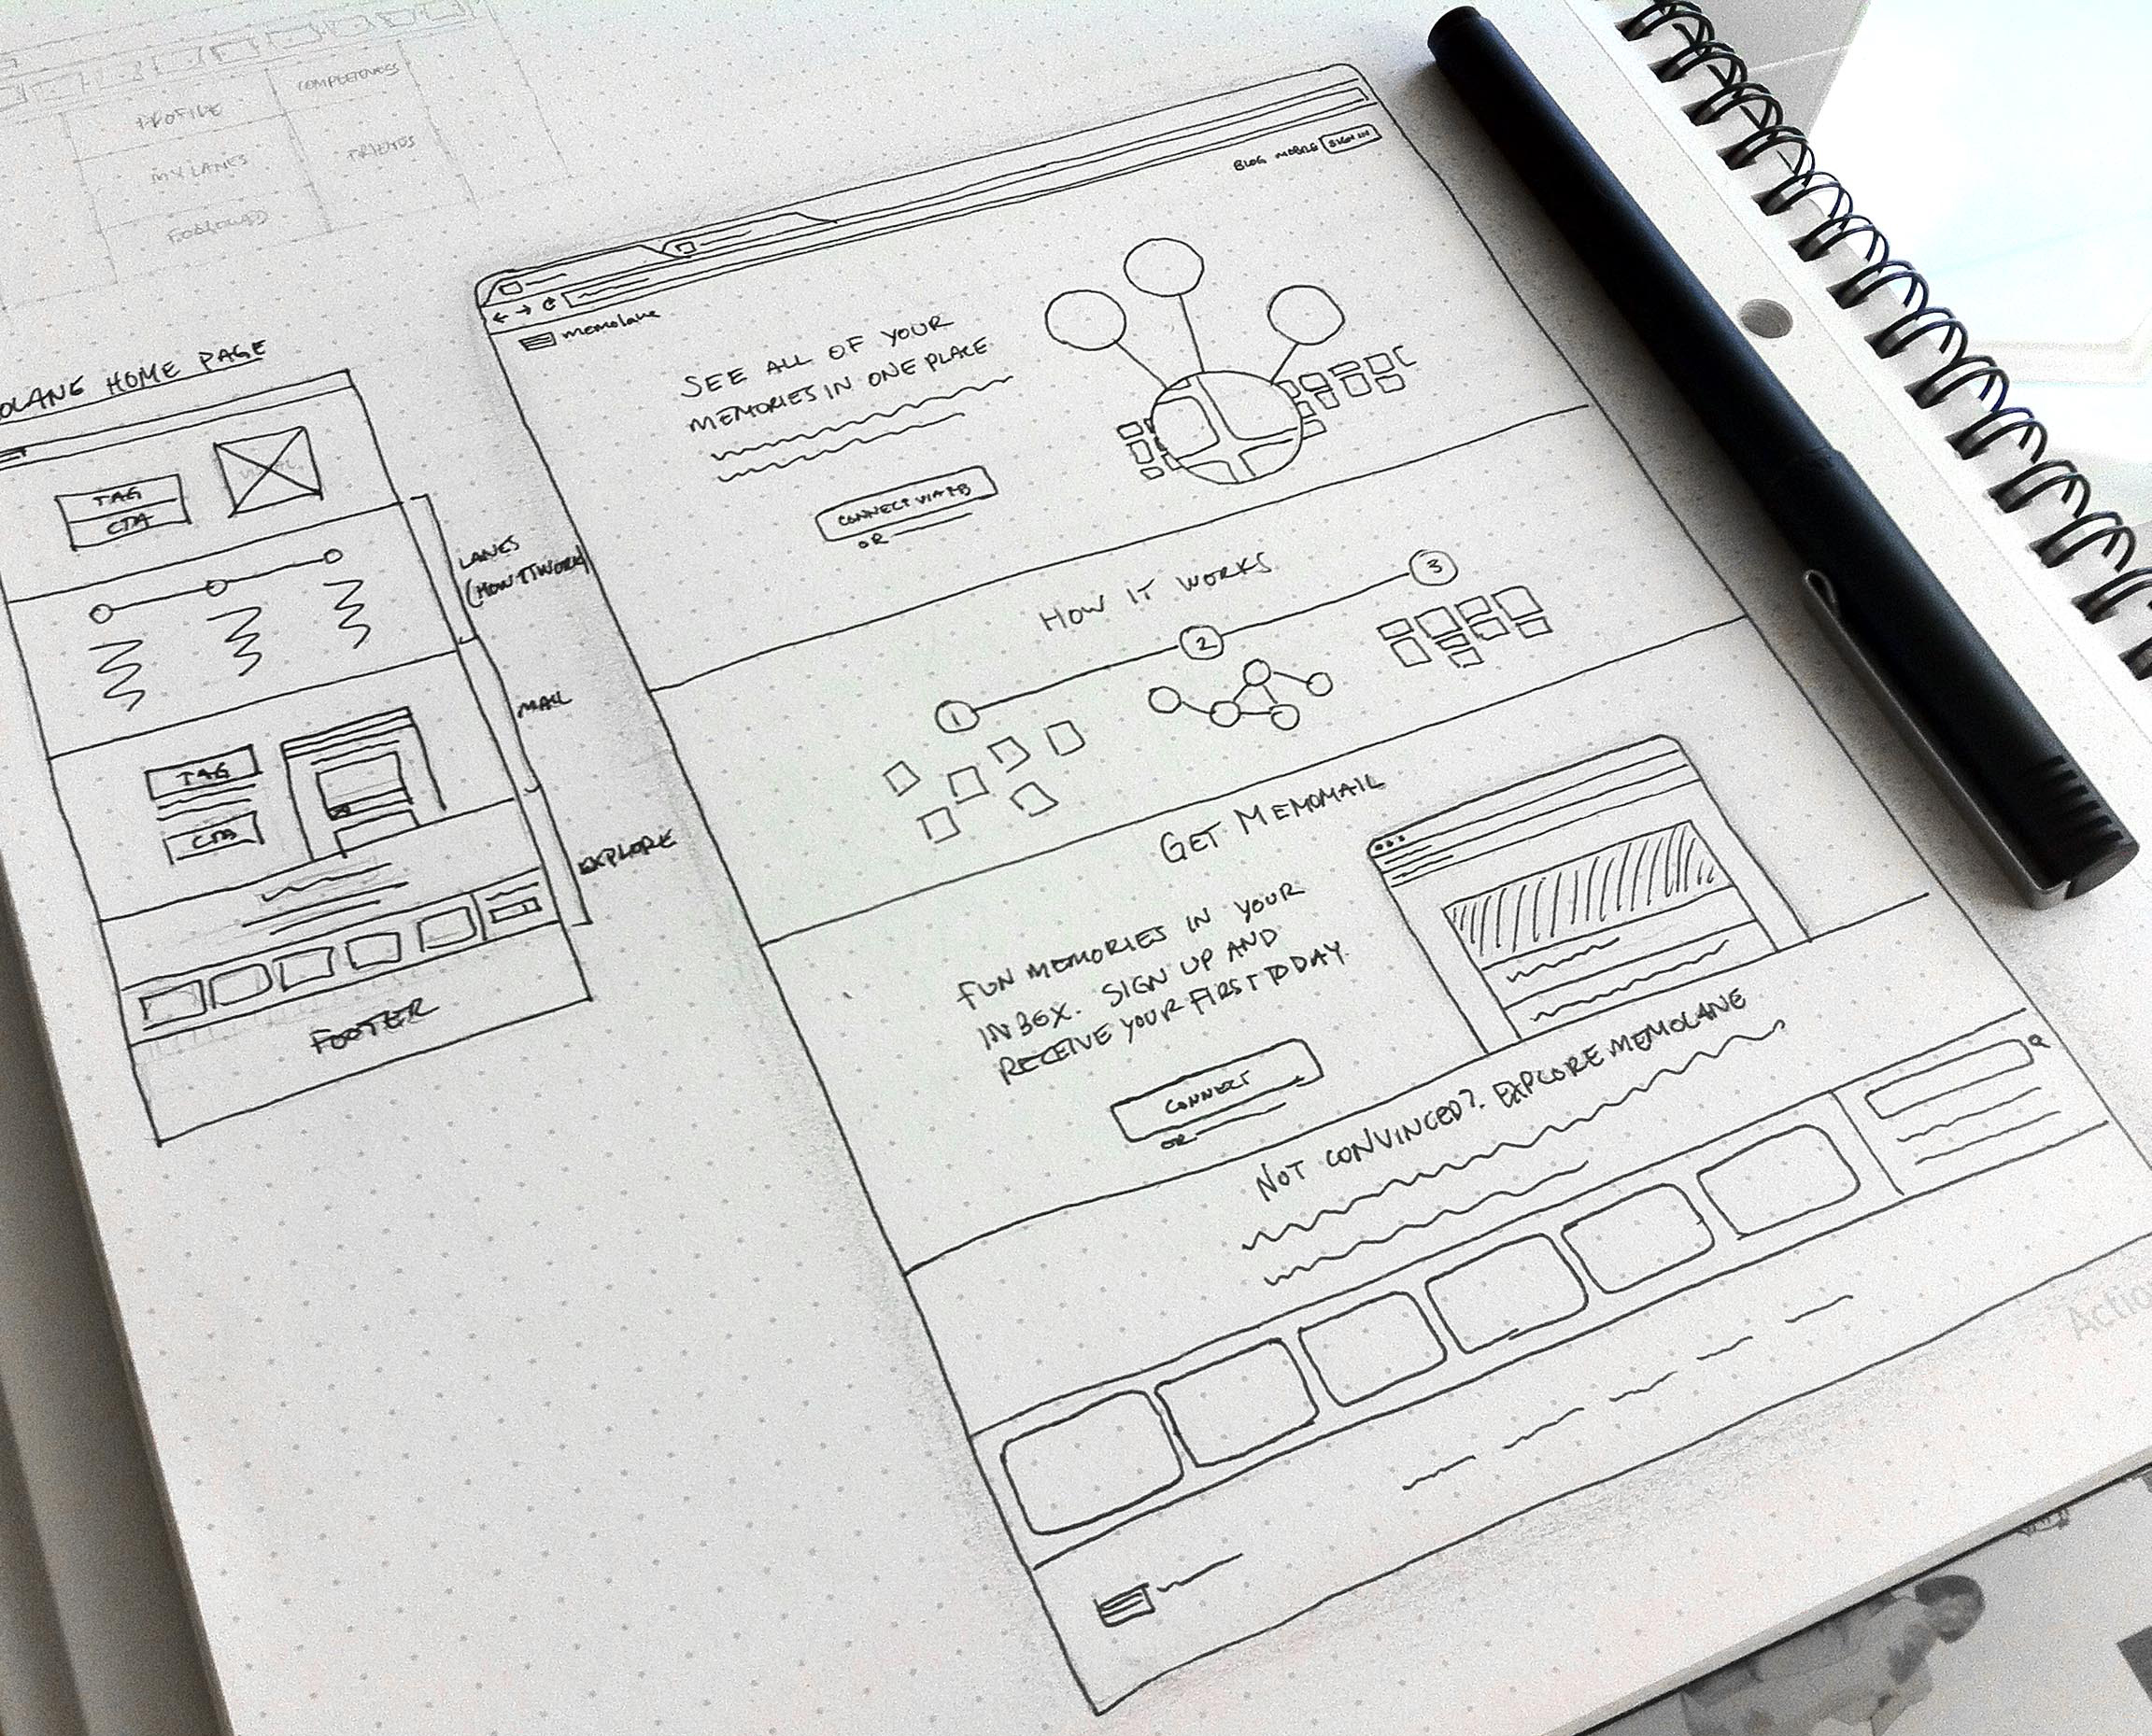 COMPLETENESS
PROFILE
FRIENDS
MY LANES
FOLLOWED
OLANE HOME PAGE
TAG
CTA
LANES
(HOW IT WORKS)
MAIL
TAG
CTA
EXPLORE
FOOTER
BLOG MOBILE SIGN IN
memolane
SEE ALL OF YOUR
MEMORIES IN ONE PLACE
CONNECT VIA FB
OR
HOW IT WORKS
1 2 3
GET MEMOMAIL
FUN MEMORIES IN YOUR
INBOX. SIGN UP AND
RECEIVE YOUR FIRST TODAY.
CONNECT
OR
NOT CONVINCED? EXPLORE MEMOLANE
Actio